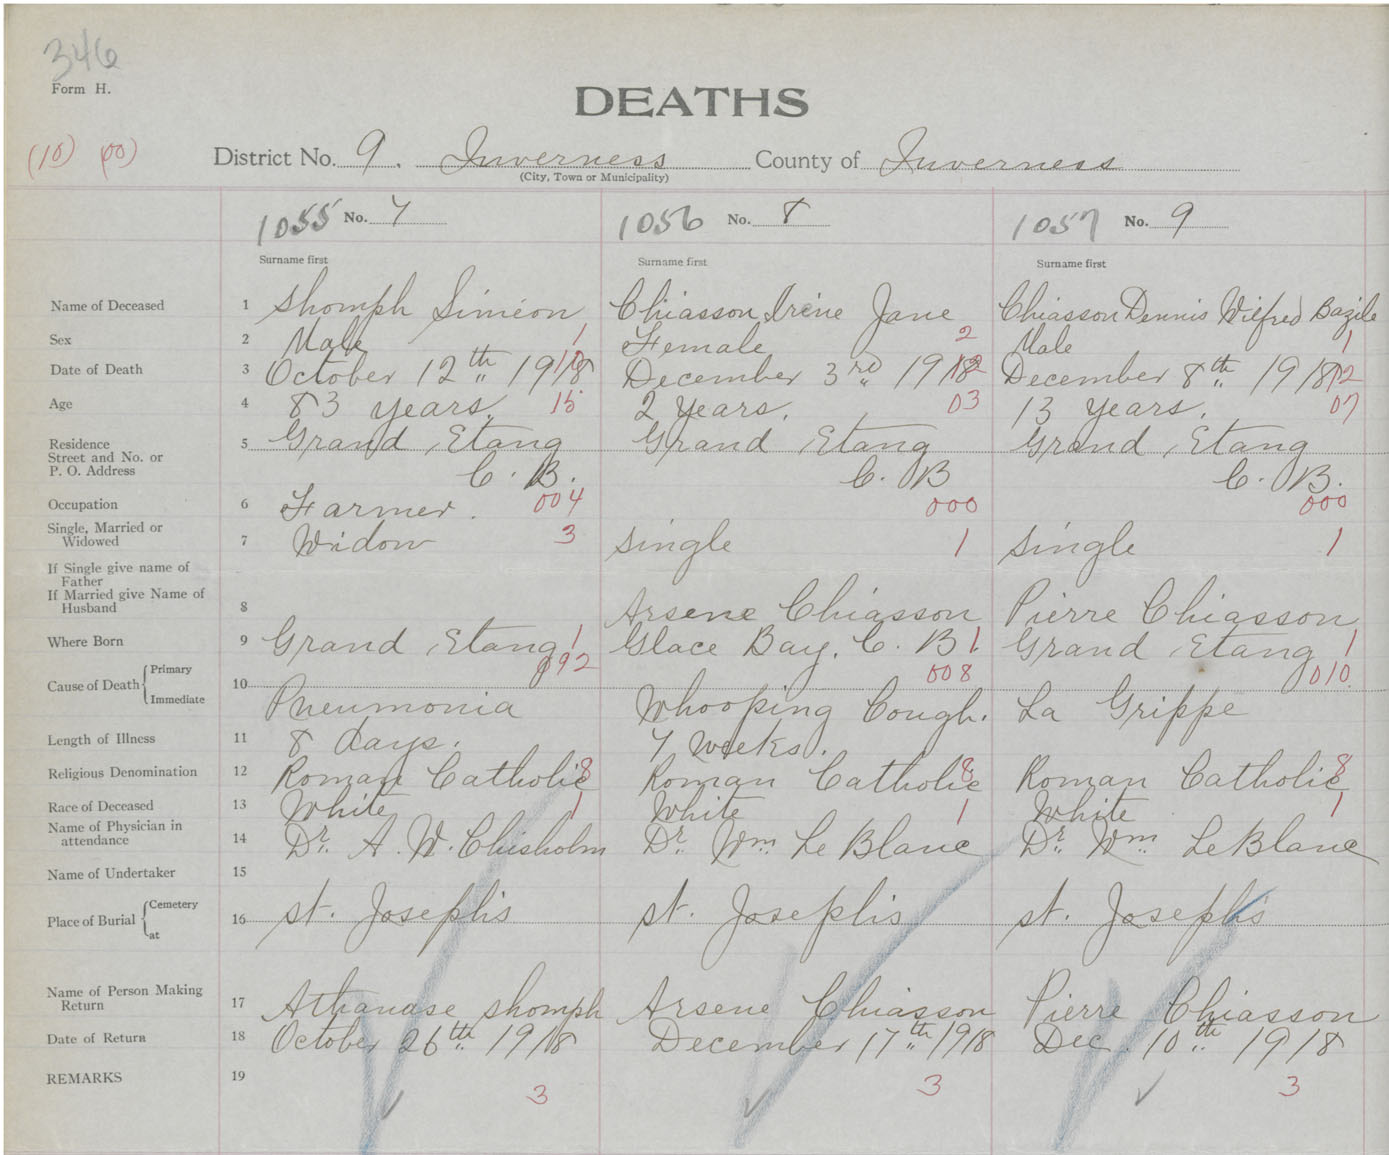 346
Form H.
DEATHS
(10) (00) District No. 9. Inverness County of Inverness
(City, Town or Municipality)
1055 No. 7 1056 No. 8 1057 No. 9
Surname first Surname first Surname first
Name of Deceased 1 Shomph Simeon Chiasson Irene Jane Chiasson Dennis Wilfred Bazile
Sex 2 Male 1 Female 2 Male 1
Date of Death 3 October 12th 1918 10 December 3rd 1918 12 December 8th 1918 12
Age 4 83 years. 15 2 Years. 03 13 years. 07
Residence
Street and No. or
P. O. Address 5 Grand Etang Grand Etang Grand Etang
C. B. C. B C. B.
Occupation 6 Farmer. 004 000 000
Single, Married or
Widowed 7 Widow 3 single 1 single 1
If Single give name of
Father
If Married give Name of
Husband 8 Arsene Chiasson Pierre Chiasson
Where Born 9 Grand Etang 1 Glace Bay, C. B 1 Grand Etang 1
092 008 010
Cause of Death Primary 10
Immediate Pneumonia Whooping Cough. La Grippe
Length of Illness 11 8 days. 7 weeks.
Religious Denomination 12 Roman Catholic 8 Roman Catholic 8 Roman Catholic 8
Race of Deceased 13 White 1 White 1 White 1
Name of Physician in
attendance 14 Dr. A. W. Chisholm Dr. Wm. Le Blanc Dr. Wm. LeBlanc
Name of Undertaker 15
Place of Burial Cemetery
at 16 St. Joseph's St. Joseph's St. Joseph's
Name of Person Making
Return 17 Athanase Shomph Arsene Chiasson Pierre Chiasson
Date of Return 18 October 26th 1918 December 17th 1918 Dec. 10th 1918
REMARKS 19 3 3 3